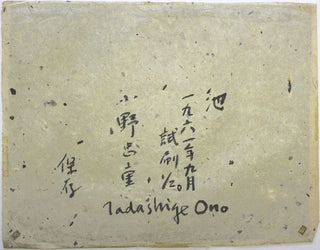 池
一九六一年九月
試刷
小野忠重
Tadashige Ono
保存